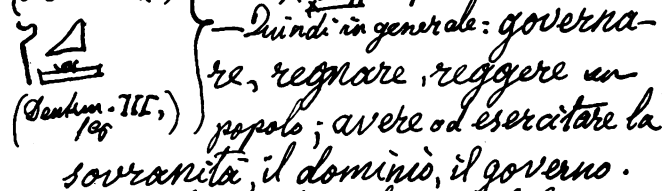 — Quindi in generale: governa-
re, regnare, reggere un
(Dentum. III,
popolo; avere od esercitare la
sovranità, il dominio, il governo.